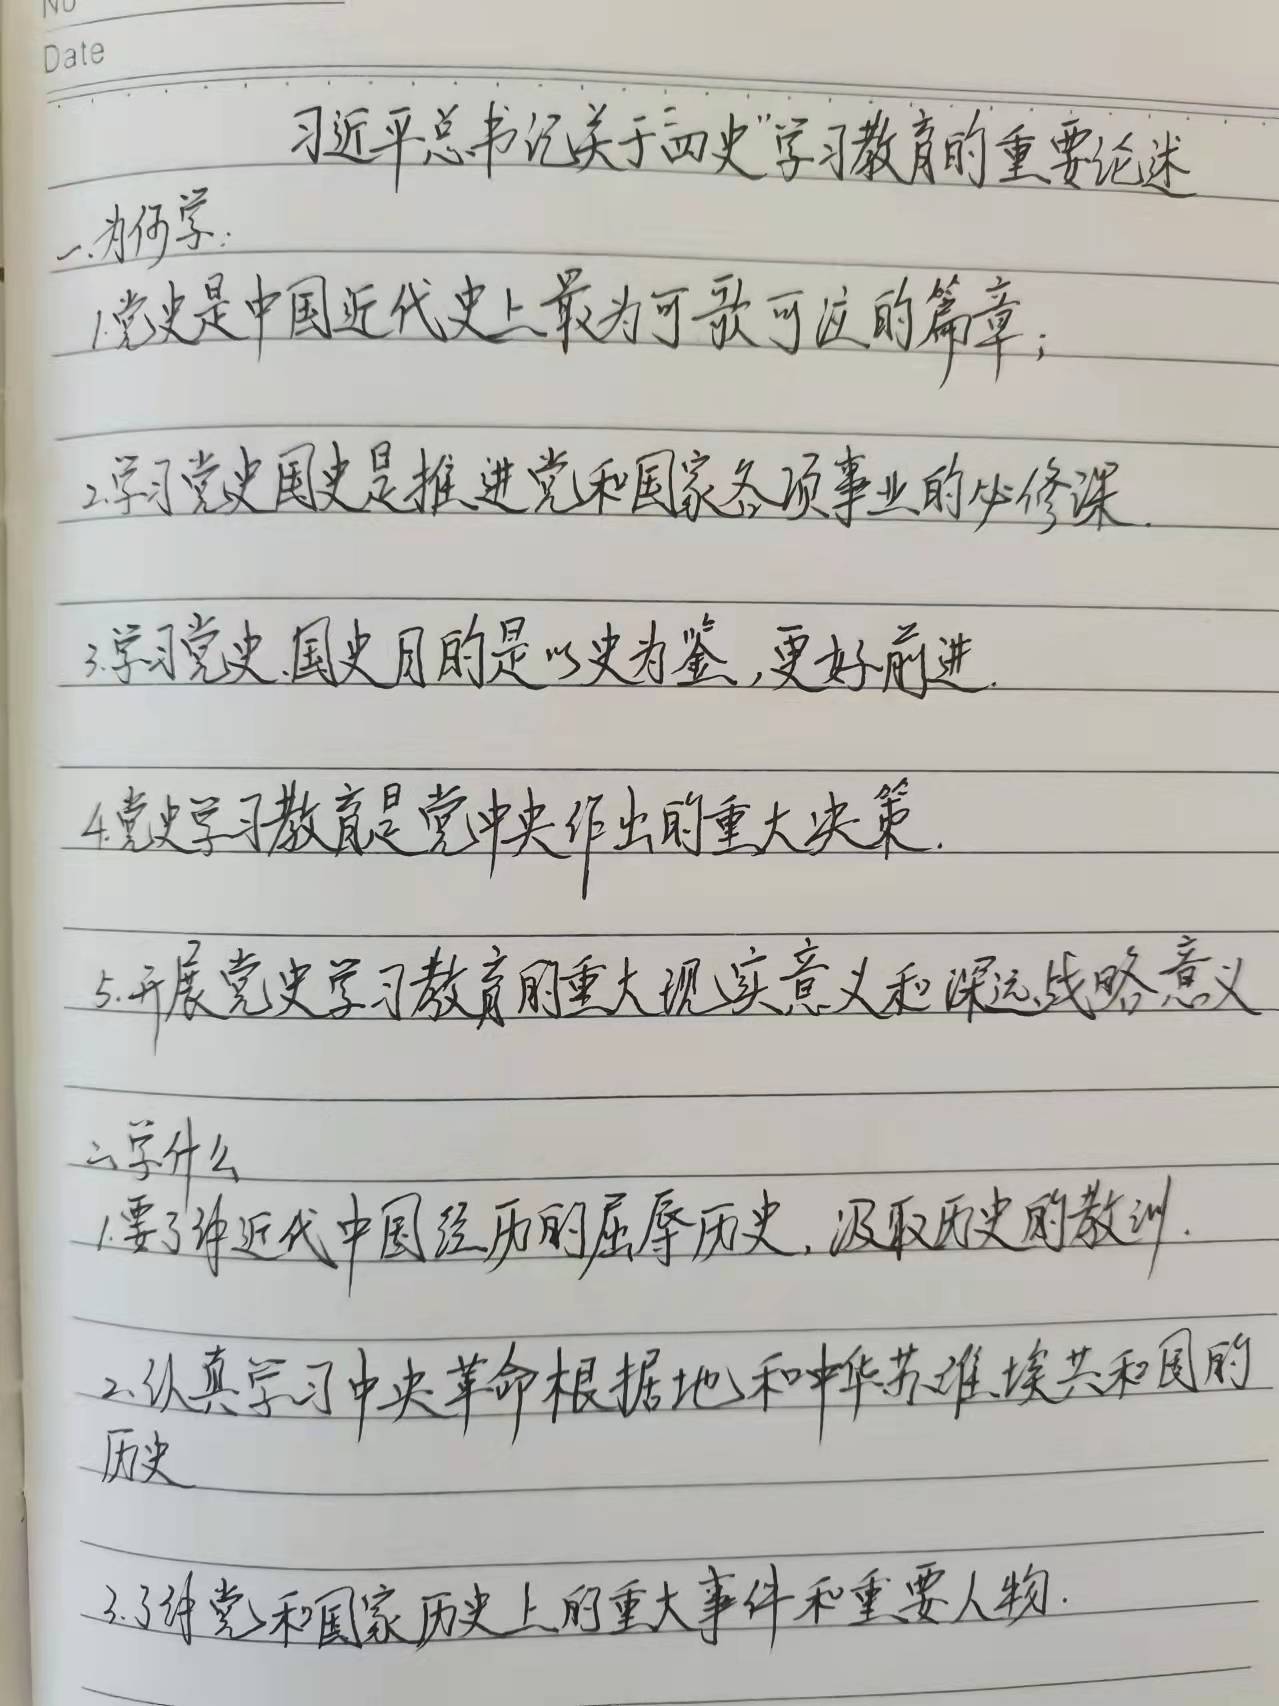 No
Date
习近平总书记关于"四史"学习教育的重要论述
一、为何学:
1.党史是中国近代史上最为可歌可泣的篇章;
2.学习党史国史是推进党和国家各项事业的必修课.
3.学习党史、国史目的是以史为鉴,更好前进.
4.党史学习教育是党中央作出的重大决策.
5.开展党史学习教育的重大现实意义和深远战略意义
二、学什么
1.要了解近代中国经历的屈辱历史,汲取历史的教训.
2.认真学习中央革命根据地和中华苏维埃共和国的
历史
3.了解党和国家历史上的重大事件和重要人物.